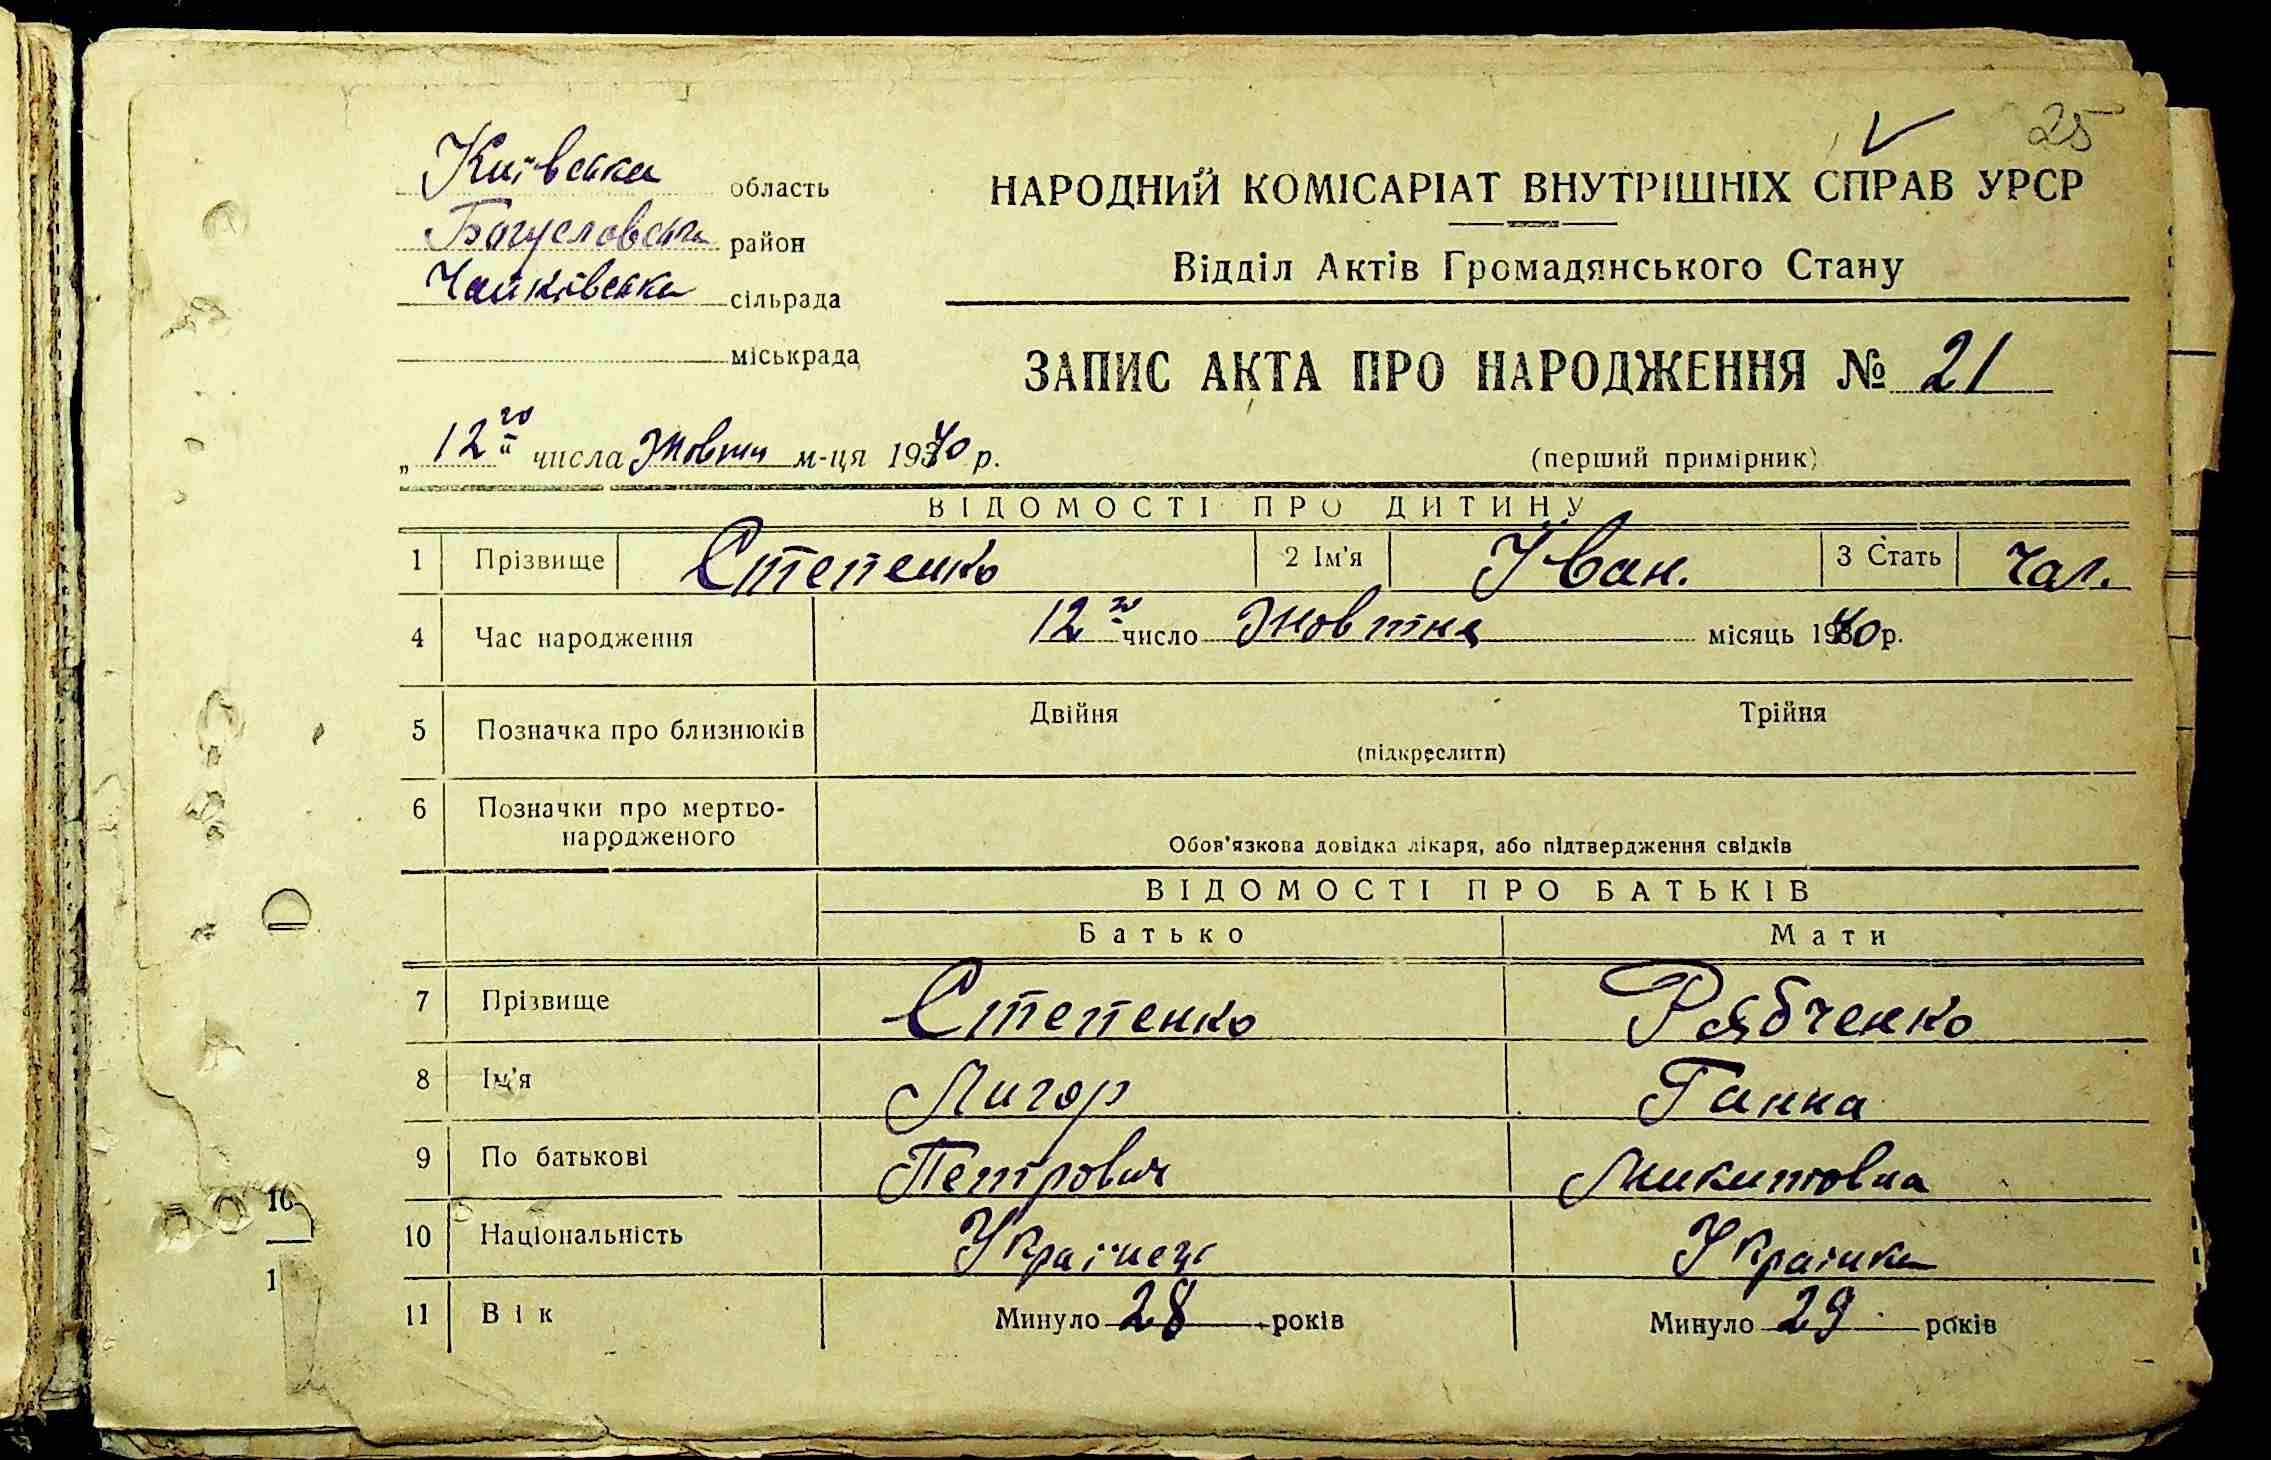 25
Київська область
Богуславськ район
Чайківська сільрада
міськрада
НАРОДНИЙ КОМІСАРІАТ ВНУТРІШНІХ СПРАВ УРСР
Відділ Актів Громадянського Стану
ЗАПИС АКТА ПРО НАРОДЖЕННЯ № 21
„12го" числа Жовтн м-ця 1940 р.
(перший примірник)
ВІДОМОСТІ ПРО ДИТИНУ
1 Прізвище Степенко 2 Ім'я Іван. 3 Стать чол.
4 Час народження 12го число Жовтня місяць 1940 р.
5 Позначка про близнюків Двійня Трійня
(підкреслити)
6 Позначки про мертво-
народженого
Обов'язкова довідка лікаря, або підтвердження свідків
ВІДОМОСТІ ПРО БАТЬКІВ
Батько Мати
7 Прізвище Степенко Рябченко
8 Ім'я Лигор Ганна
9 По батькові Петрович Микитовна
10 Національність Українець Українка
11 Вік Минуло 28 років Минуло 29 років
16
1